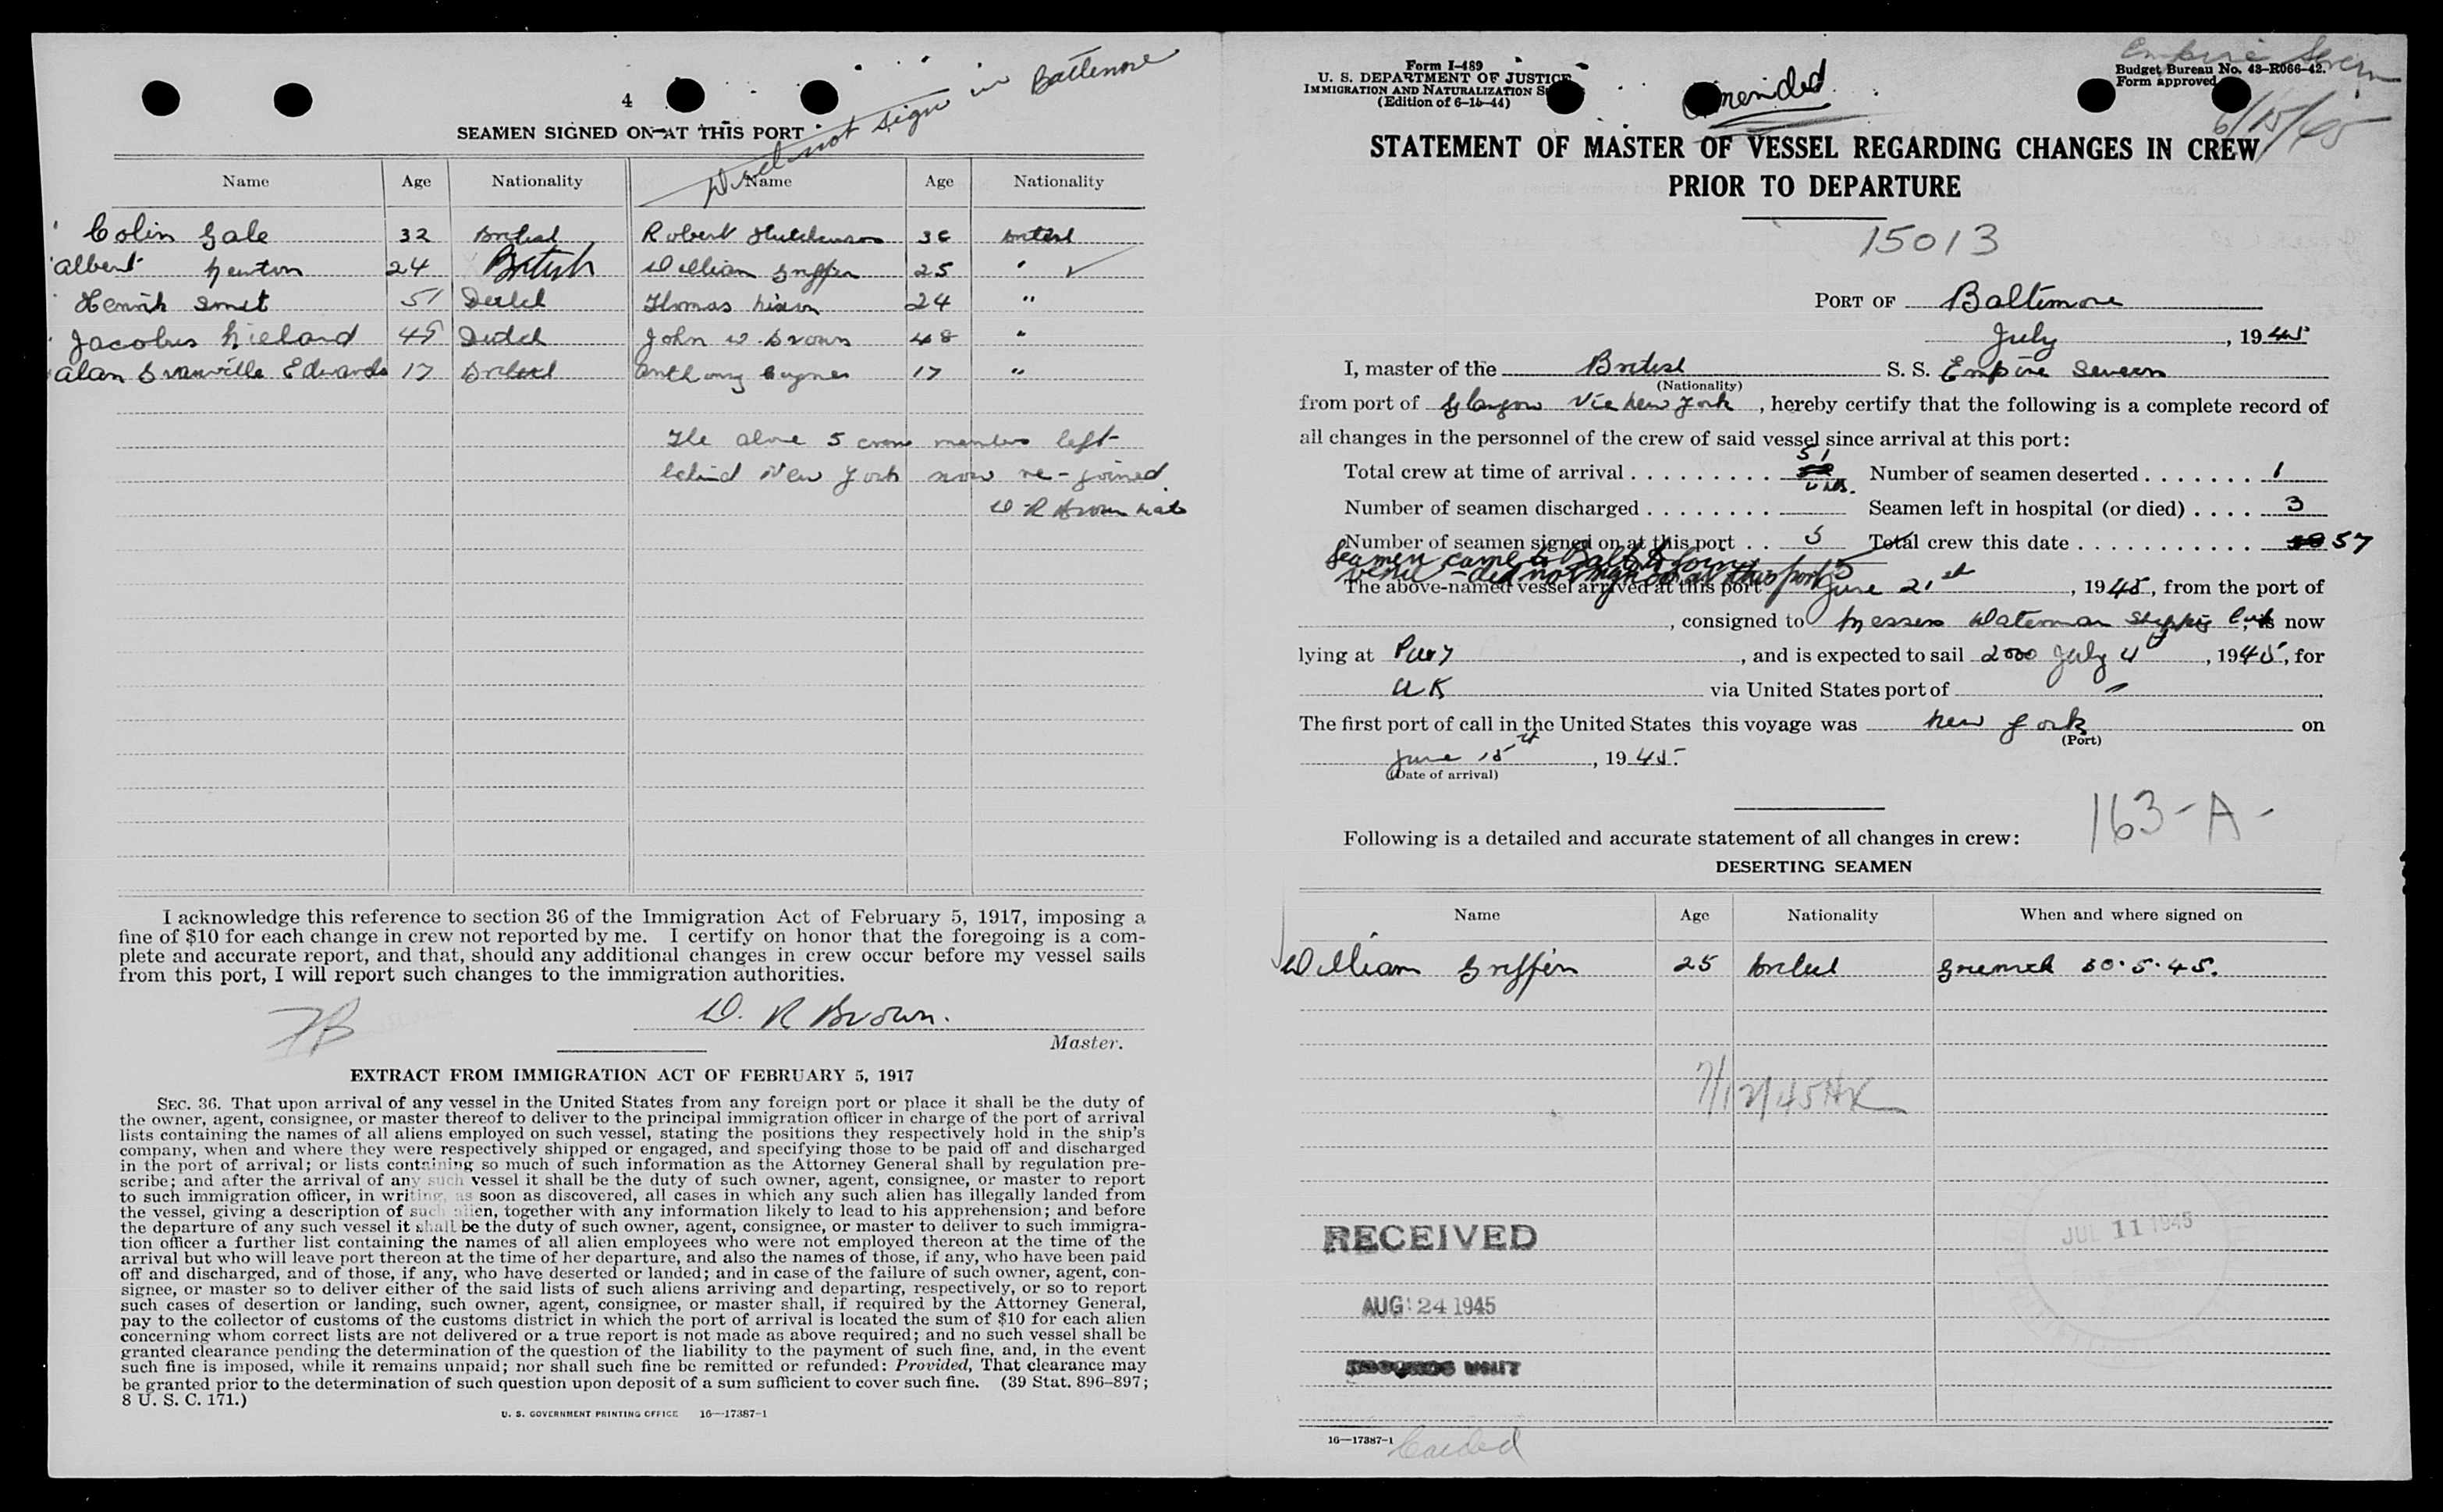 4
Did not sign in Baltimore
SEAMEN SIGNED ON AT THIS PORT
Name Age Nationality Name Age Nationality
Colin Gale 32 British Robert Hutchinson 36 British
Albert Newton 24 British William Griffin 25 " ✓
Henrik Smit 51 Dutch Thomas Nixon 24 "
Jacobus Nieland 45 Dutch John W. Brown 48 "
Alan Granville Edwards 17 British Anthony 17 "
The above 5 crew members left
behind New York now re-joined
W R Brown
I acknowledge this reference to section 36 of the Immigration Act of February 5, 1917, imposing a
fine of $10 for each change in crew not reported by me. I certify on honor that the foregoing is a com-
plete and accurate report, and that, should any additional changes in crew occur before my vessel sails
from this port, I will report such changes to the immigration authorities.
W. R Brown.
Master.
EXTRACT FROM IMMIGRATION ACT OF FEBRUARY 5, 1917
SEC. 36. That upon arrival of any vessel in the United States from any foreign port or place it shall be the duty of
the owner, agent, consignee, or master thereof to deliver to the principal immigration officer in charge of the port of arrival
lists containing the names of all aliens employed on such vessel, stating the positions they respectively hold in the ship's
company, when and where they were respectively shipped or engaged, and specifying those to be paid off and discharged
in the port of arrival; or lists containing so much of such information as the Attorney General shall by regulation pre-
scribe; and after the arrival of any such vessel it shall be the duty of such owner, agent, consignee, or master to report
to such immigration officer, in writing, as soon as discovered, all cases in which any such alien has illegally landed from
the vessel, giving a description of such alien, together with any information likely to lead to his apprehension; and before
the departure of any such vessel it shall be the duty of such owner, agent, consignee, or master to deliver to such immigra-
tion officer a further list containing the names of all alien employees who were not employed thereon at the time of the
arrival but who will leave port thereon at the time of her departure, and also the names of those, if any, who have been paid
off and discharged, and of those, if any, who have deserted or landed; and in case of the failure of such owner, agent, con-
signee, or master so to deliver either of the said lists of such aliens arriving and departing, respectively, or so to report
such cases of desertion or landing, such owner, agent, consignee, or master shall, if required by the Attorney General,
pay to the collector of customs of the customs district in which the port of arrival is located the sum of $10 for each alien
concerning whom correct lists are not delivered or a true report is not made as above required; and no such vessel shall be
granted clearance pending the determination of the question of the liability to the payment of such fine, and, in the event
such fine is imposed, while it remains unpaid; nor shall such fine be remitted or refunded: Provided, That clearance may
be granted prior to the determination of such question upon deposit of a sum sufficient to cover such fine. (39 Stat. 896-897;
8 U. S. C. 171.)
U. S. GOVERNMENT PRINTING OFFICE 16—17387-1
Form I-489
U. S. DEPARTMENT OF JUSTICE
IMMIGRATION AND NATURALIZATION
(Edition of 6-15-44)
Amended
Empire Severn
Budget Bureau No. 43-R066-42.
Form approved
6/15/45
STATEMENT OF MASTER OF VESSEL REGARDING CHANGES IN CREW
PRIOR TO DEPARTURE
15013
PORT OF Baltimore
July, 1945
I, master of the British S. S. Empire Severn
(Nationality)
from port of Glasgow Via New York, hereby certify that the following is a complete record of
all changes in the personnel of the crew of said vessel since arrival at this port:
51
Total crew at time of arrival Number of seamen deserted 1
Number of seamen discharged Seamen left in hospital (or died) 3
Number of seamen signed on at this port 5 Total crew this date 57
Seamen came to Balto to join
vessel - did not sign on at this port 5
The above-named vessel arrived at this port June 21st, 1945, from the port of
, consigned to Messrs Waterman Shipping, is now
lying at Pier 7, and is expected to sail 2000 July 4, 1945, for
UK via United States port of
The first port of call in the United States this voyage was New York on
(Port)
June 15th, 1945.
(Date of arrival)
163-A-
Following is a detailed and accurate statement of all changes in crew:
DESERTING SEAMEN
Name Age Nationality When and where signed on
William Griffin 25 British Greenock 30.5.45.
7/12/45 HK
RECEIVED
JUL 11 1945
AUG 24 1945
16—17387-1
Carded